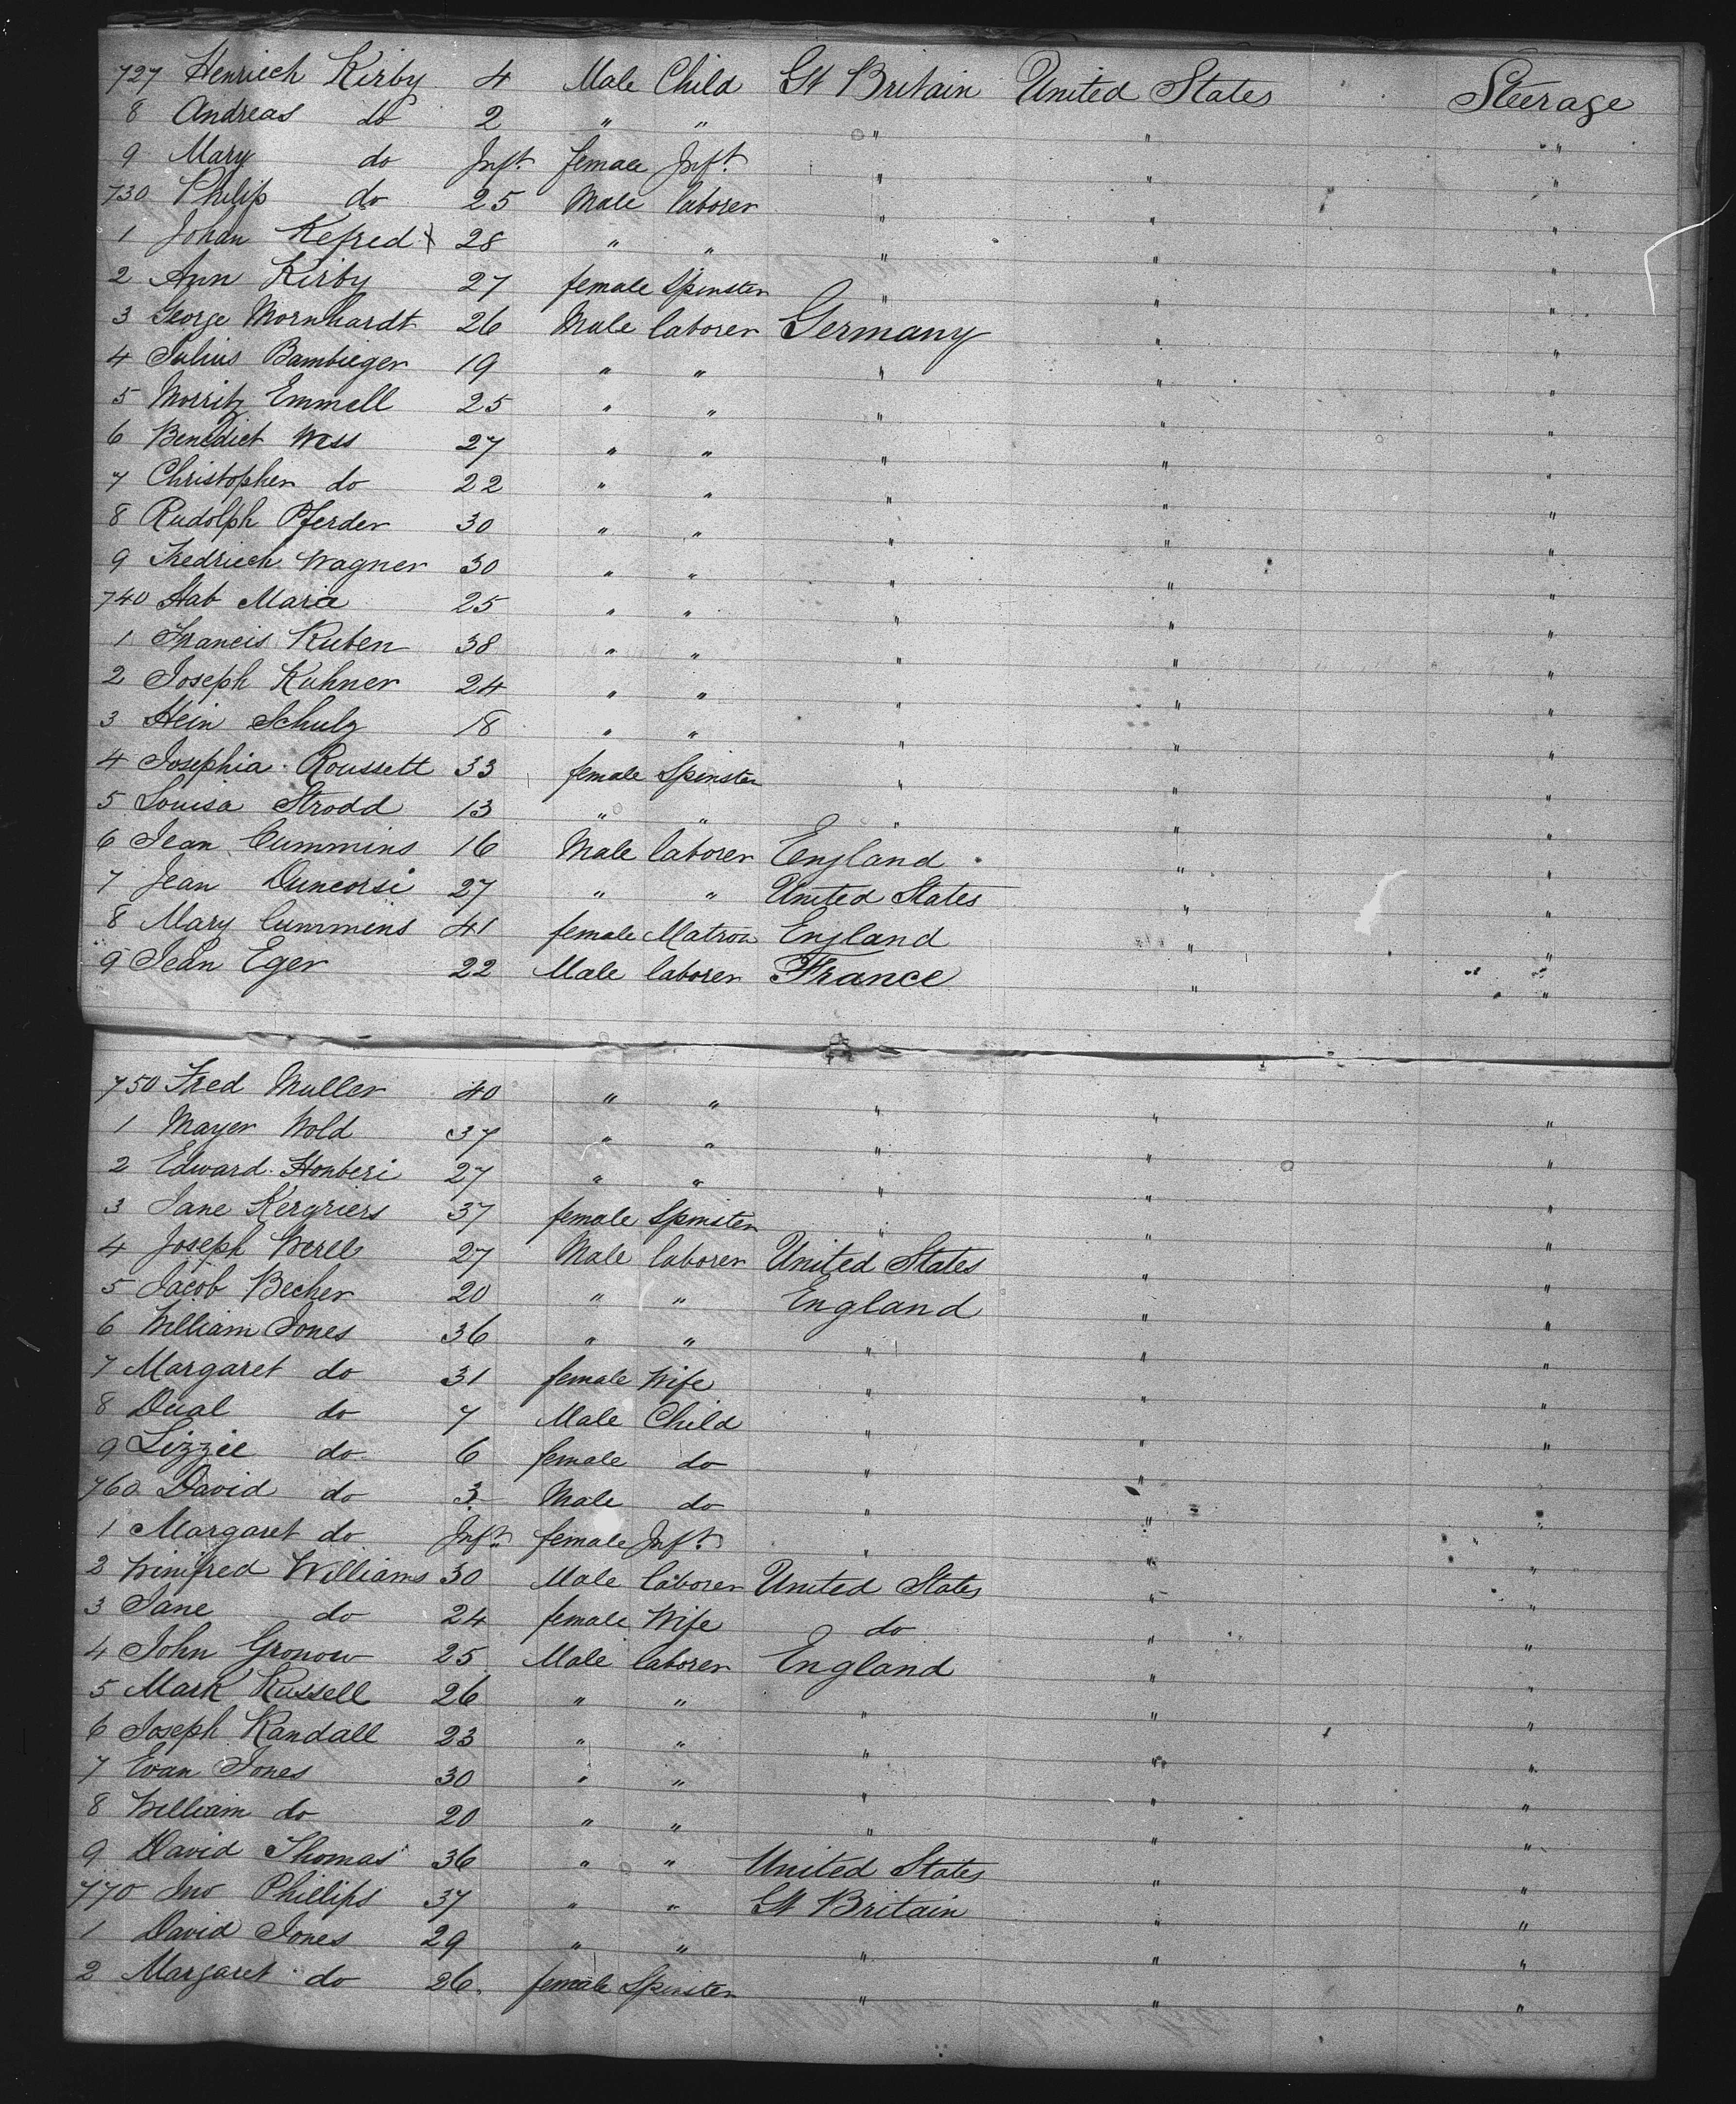 727 Henriech Kirby 4 Male Child Gt Britain United States Steerage
8 Andreas do 2 " " " " "
9 Mary do Inft. female Inft. " " "
730 Philip do 25 Male laborer " " "
1 Johan Kefred x 28 " " " " "
2 Ann Kirby 27 female Spinster " " "
3 George Mornhardt 26 Male laborer Germany " "
4 Julius Bambieger 19 " " " " "
5 Morritz Emmell 25 " " " " "
6 Benedict Wess 27 " " " " "
7 Christopher do 22 " " " " "
8 Rudolph Pferder 30 " " " " "
9 Fredriech Wagner 30 " " " " "
740 Stab Maria 25 " " " " "
1 Francis Ruben 38 " " " " "
2 Joseph Kuhner 24 " " " " "
3 Hein Schulz 18 " " " " "
4 Josephia Roussett 33 female Spinster " " "
5 Louisa Strodd 13 " " " " "
6 Jean Cummins 16 Male laborer England " "
7 Jean Duncorsi 27 " " United States " "
8 Mary Cummins 41 female Matron England " "
9 Jean Eger 22 Male laborer France " "
750 Fred Muller 40 " " " " "
1 Mayer Wold 37 " " " " "
2 Edward Honberi 27 " " " " "
3 Jane Kergriers 37 female Spinster " " "
4 Joseph Werel 27 Male laborer United States " "
5 Jacob Becher 20 " " England " "
6 William Jones 36 " " " " "
7 Margaret do 31 female Wife " " "
8 Dual do 7 Male Child " " "
9 Lizzie do 6 female do " " "
760 David do 3 Male do " " "
1 Margaret do Inft. female Inft. " " "
2 Winifred Williams 30 Male laborer United States " "
3 Jane do 24 female Wife do " "
4 John Gronow 25 Male laborer England " "
5 Mark Russell 26 " " " " "
6 Joseph Randall 23 " " " " "
7 Evan Jones 30 " " " " "
8 William do 20 " " " " "
9 David Thomas 36 " " United States " "
770 Jno Phillips 37 " " Gt Britain " "
1 David Jones 29 " " " " "
2 Margaret do 26 female Spinster " " "